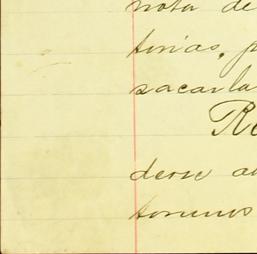 nota de
torias, p
sacarla
Re
derse a
torenos